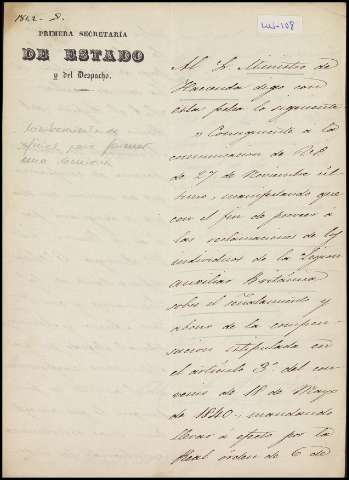 1842 - 8.
PRIMERA SECRETARÍA
DE ESTADO
y del Despacho.
Al Sr. Ministro de
Hacienda digo con
esta fecha lo siguiente
"Consiguiente a la
comunicacion de V.E.
de 27 de Noviembre úl-
timo, manifestando que
con el fin de proveer a
las reclamaciones de los
individuos de la Legion
auxiliar Británica
sobre el señalamiento y
abono de la compen-
sacion estipulada en
el artículo 3º del con-
venio de 18 de Mayo
de 1840, mandando
llevar á efecto por la
Real órden de 6 de
nombramiento de
oficial para formar
una comision